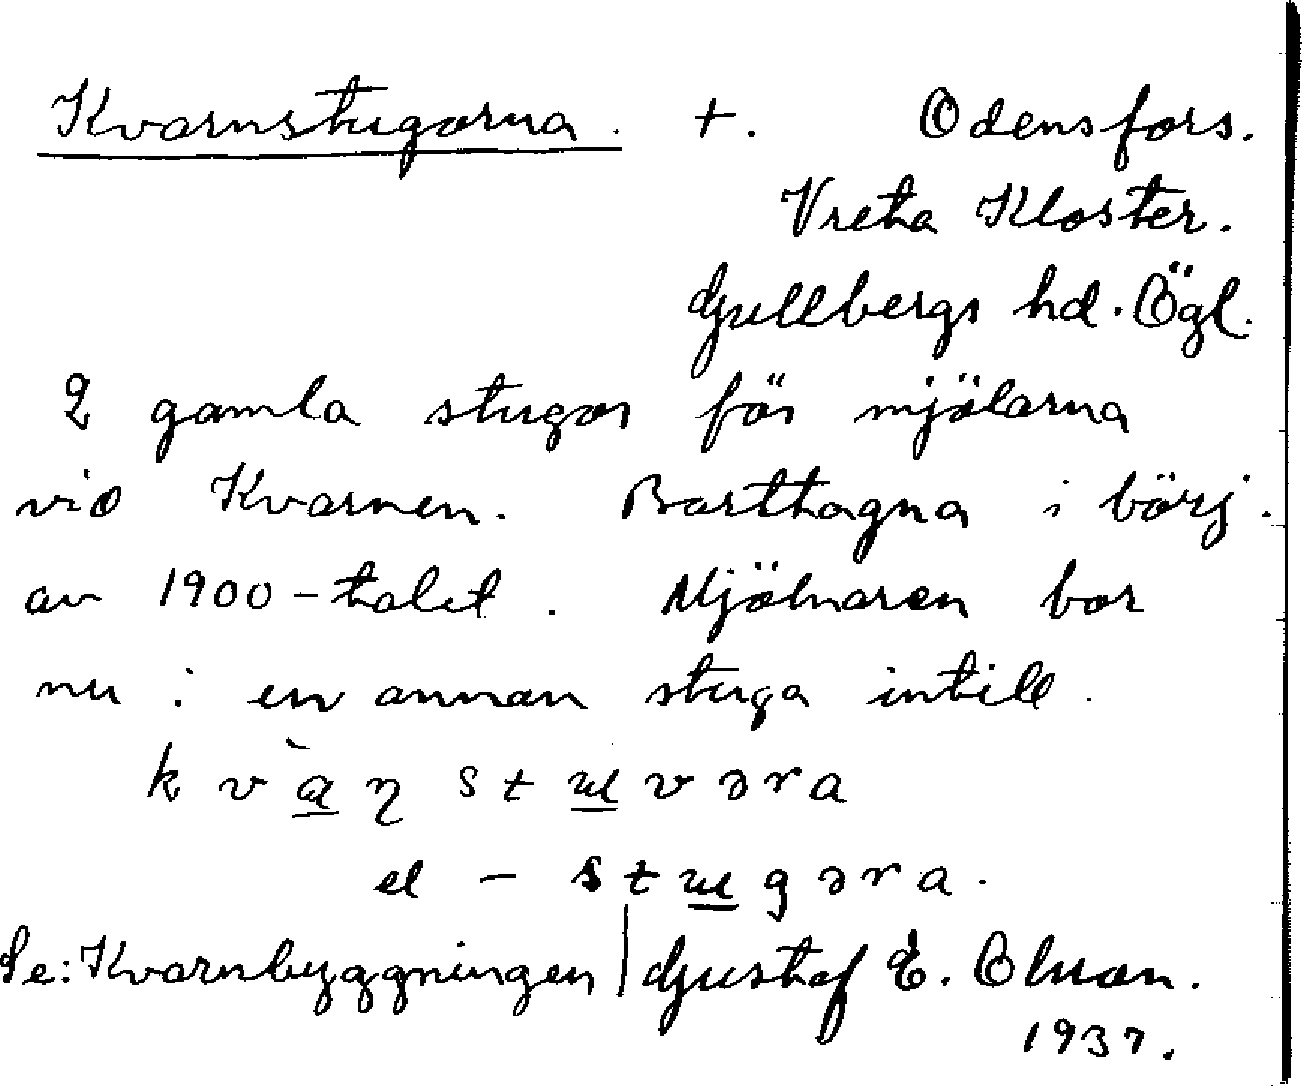 Kvarnstugorna. +. Odensfors.
Vreta Kloster.
Gullbergs hd. Ögl.
2 gamla stugor för mjölarna
vid Kvarnen. Borttagna i börj.
av 1900-talet. Mjölnaren bor
nu i en annan stuga intill.
kvàŋ stɯvəra
el - stɯgəra.
Se: Kvarnbyggningen | Gustaf E. Olman.
1937.